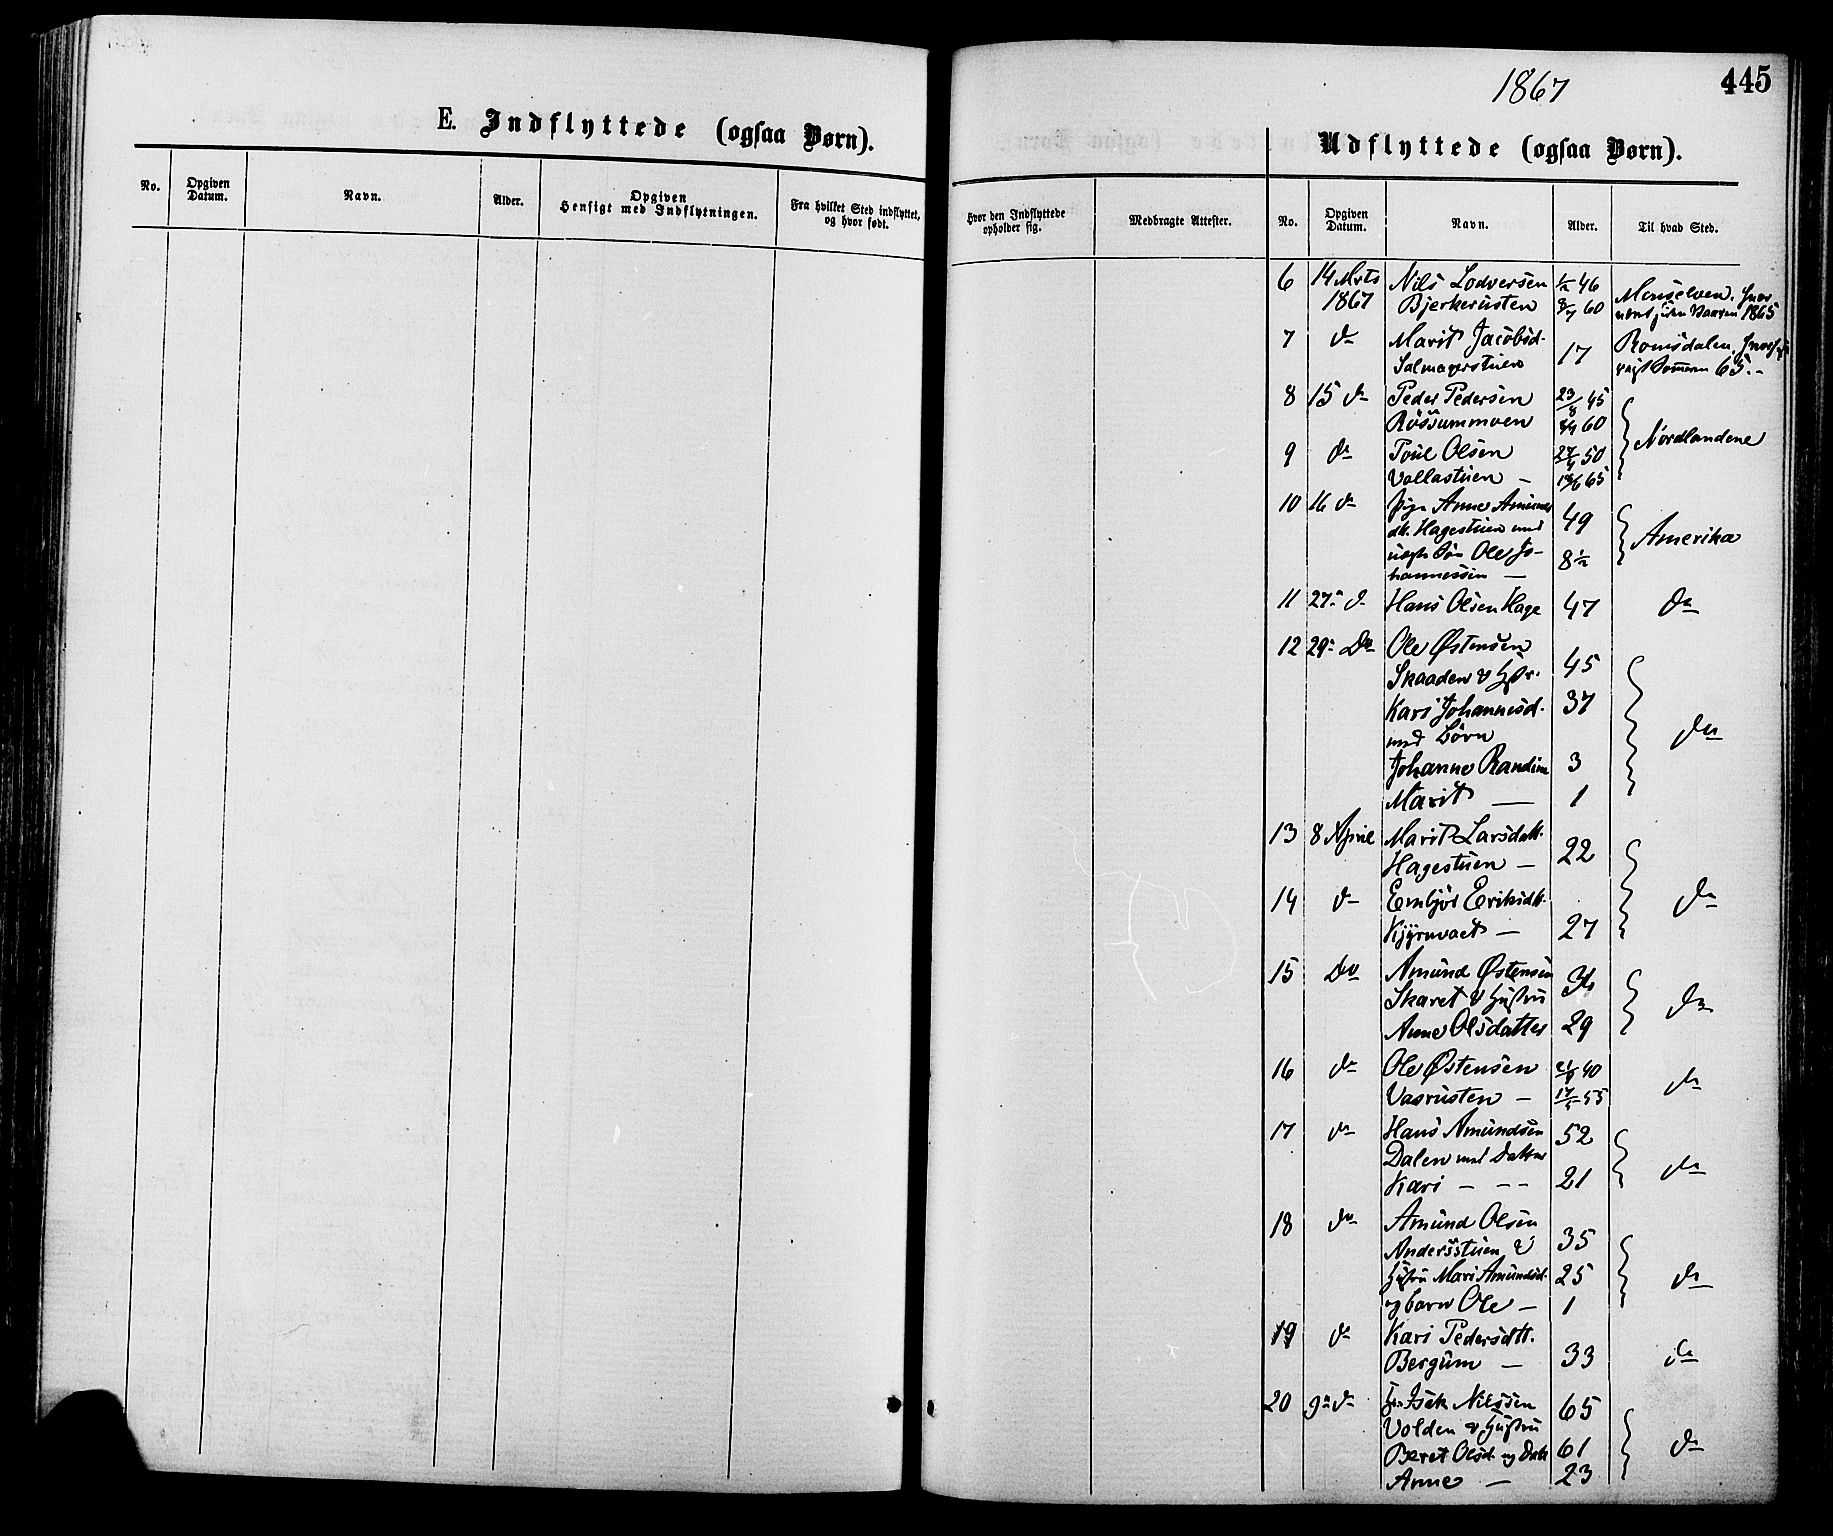 1867
445
E. Indflyttede (ogsaa Børn).
No.
Opgiven Datum.
Navn.
Alder.
Opgiven Hensigt med Indflytningen.
Fra hvilket Sted indflyttet, og hvor født.
hvor den Indflyttede opholder sig.
Medbragte Attester.
Udflyttede (ogsaa Børn).
No.
Opgiven Datum.
Navn.
Alder.
Til hvad Sted.
6 14 Mrts Nils Lodversen 46
1867 Bjerkerusten 60 1865
7 do Marit Jacobsd. 17 Romsdalen
65.-
8 15 do Peder Pedersen 23/8 45
Rössummoen 60 Nordlandene
9 do Poul Olsen 50
Vollastuen - 65
10 16 do Pige Anne 49
dtr. Hagestuen med Amerika
uægte Søn Ole Jo- 8½
hannessen -
11 27 do Hans Olsen Hage 47 do
12 29 Do Ole Østensen 45
Skaaden & Hstr.
Kari Johannesd. 37
med Børn do
Johanne Randine 3
Marit - 1
13 8 April Marit Larsdatt. 22
Hagestuen -
14 do Embjör Eriksdtt. do
- 27
15 Do Amund Østensen
Skaret & Hustru do
Anne Olsdatter 29
16 do Ole Østensen 40
Vasrusten - 55 do
17 do Hans Amundsen 52
Dalen med Datter do
Kari - - - 21
18 do Amund Olsen 35
Andersstuen &
Hustru Mari Amundsd. 25 do
og barn Ole - 1
19 do Kari Pedersdtt.
Bergum - 33 do
20 9 do Isak Nilssen 65
Volden & Hustru
Beret Olsd. og Datt 61 do
Anne - 23